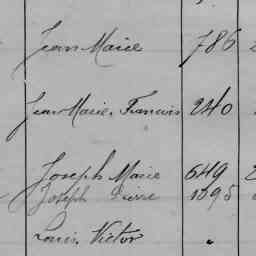 Jean Marie 786
Jean Marie, Francois 240
Joseph Marie 649
Joseph Pierre 1895
Louis, Victor "